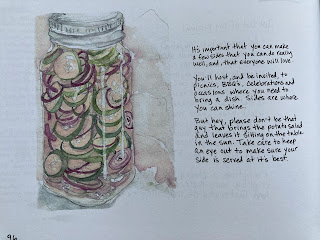 It's important that you can make
a few sides that you can do really
well, and, that everyone will love.
You'll host, and be invited, to
picnics, BBQs, celebrations and
occasions where you need to
bring a dish. Sides are where
you can shine.
But hey, please don't be that
guy that brings the potato salad
and leaves it sitting on the table
in the sun. Take care to keep
an eye out to make sure your
side is served at it's best.
96